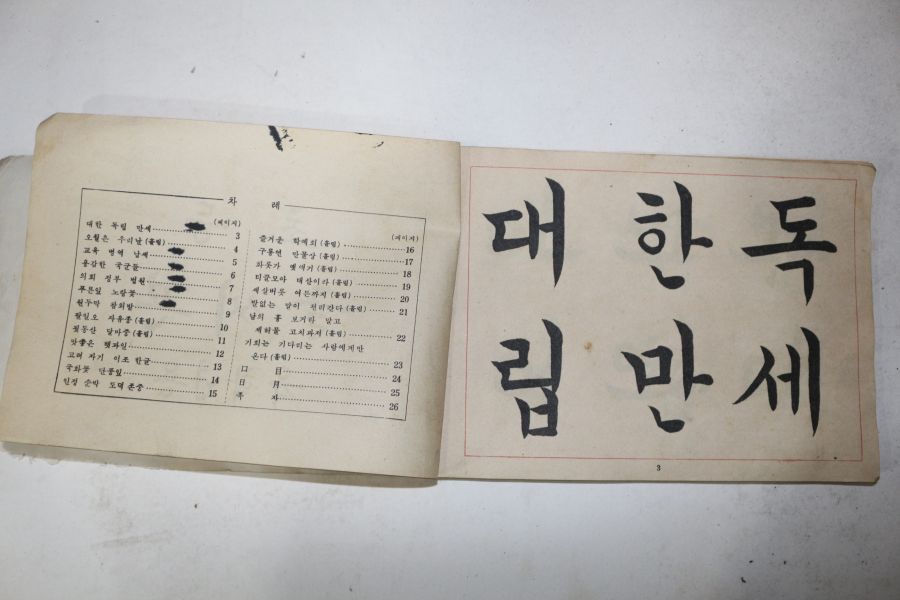 차 례
(페이지)
대한 독립 만세 3
오월은 우리날 (흘림) 4
교육 병역 납세 5
용감한 국군들 6
의회 정부 법원 7
푸른잎 노랑꽃 8
원두막 참외밭 9
팔일오 자유종 (흘림) 10
뒷동산 달마중 (흘림) 11
맛좋은 햇과일 12
고려 자기 이조 한글 13
국화꽃 단풍잎 14
인정 순박 도덕 존중 15
(페이지)
즐거운 학예회 (흘림) 16
구룡연 만물상 (흘림) 17
화롯가 옛얘기 (흘림) 18
티끌모아 태산이라 (흘림) 19
세살버릇 여든까지 (흘림) 20
발없는 말이 천리간다 (흘림) 21
남의 흉 보거라 말고
제허물 고치과저 (흘림) 22
기회는 기다리는 사람에게만
온다 (흘림) 23
口 目 24
日 月 25
족 자 26
대 한 독
립 만 세
3